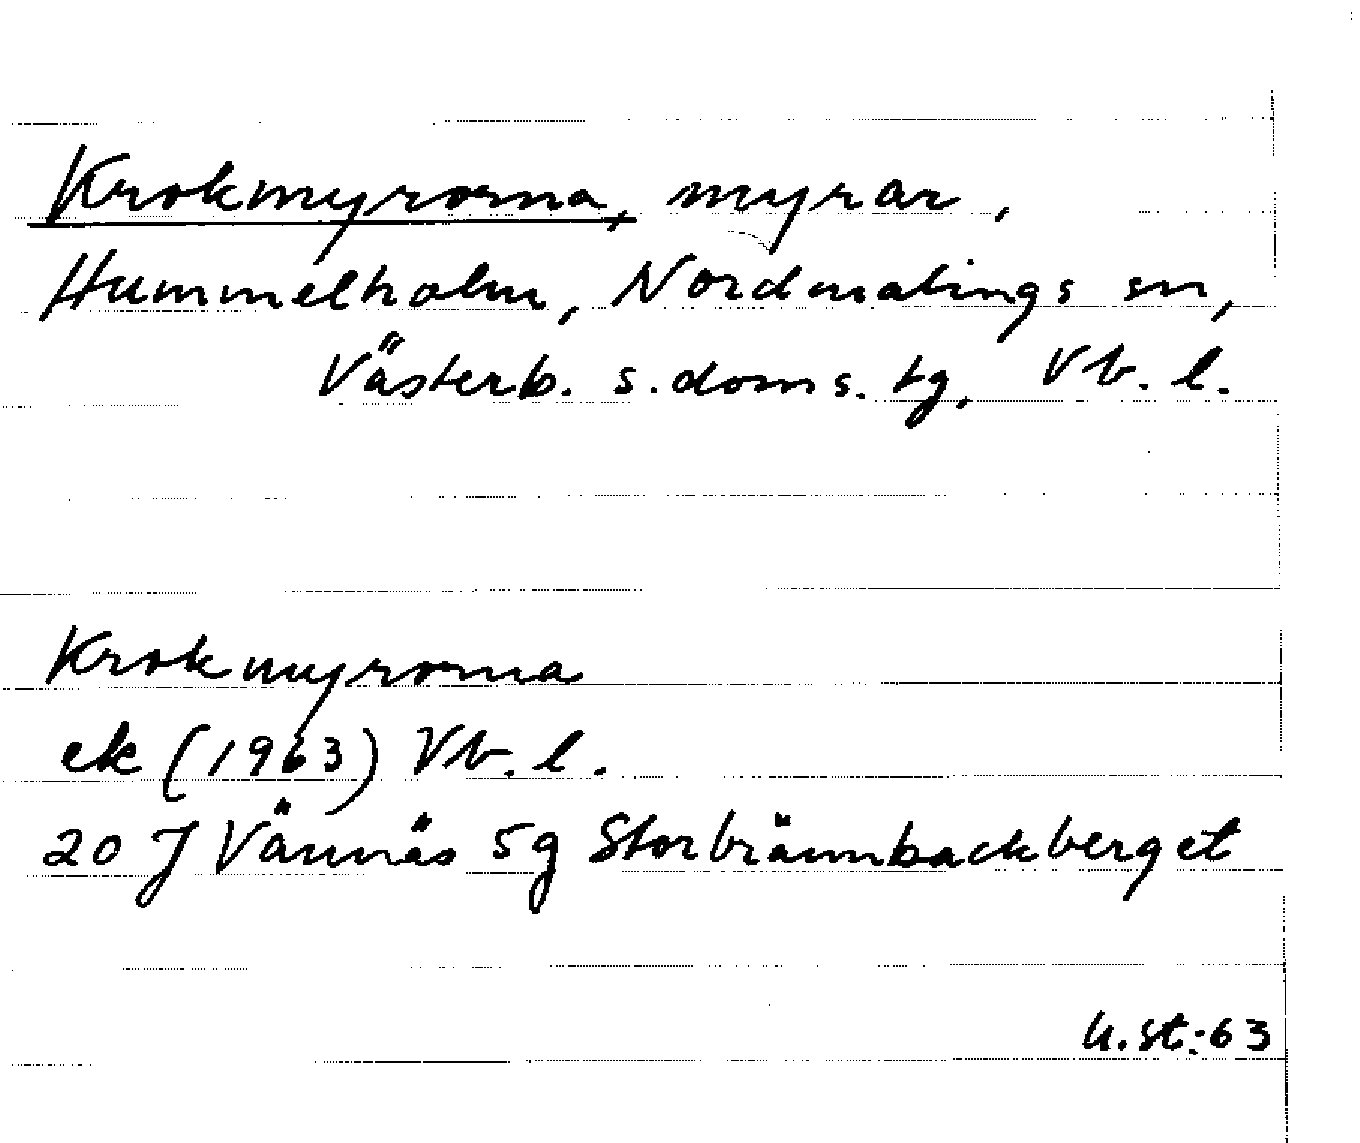 Krokmyrorna, myrar,
Hummelholm, Nordmalings sn,
Västerb. s. doms. tg, Vb. l.
Krokmyrorna
ek (1963) Vb. l.
20 J Vännäs 5g Storbrännbackberget
U.St:63